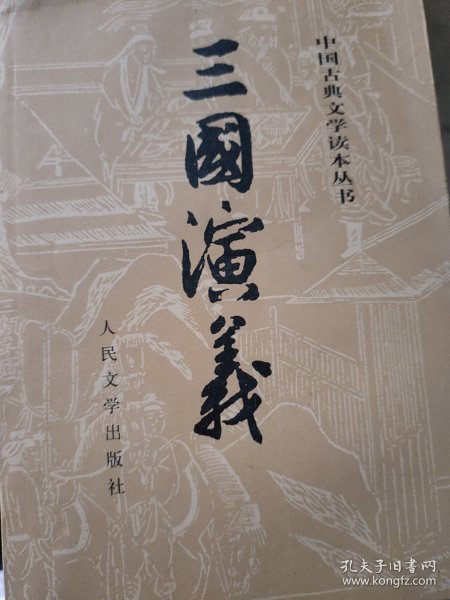 中国古典文学读本丛书
三國演義
人民文学出版社
孔夫子旧书网
www.kongfz.com